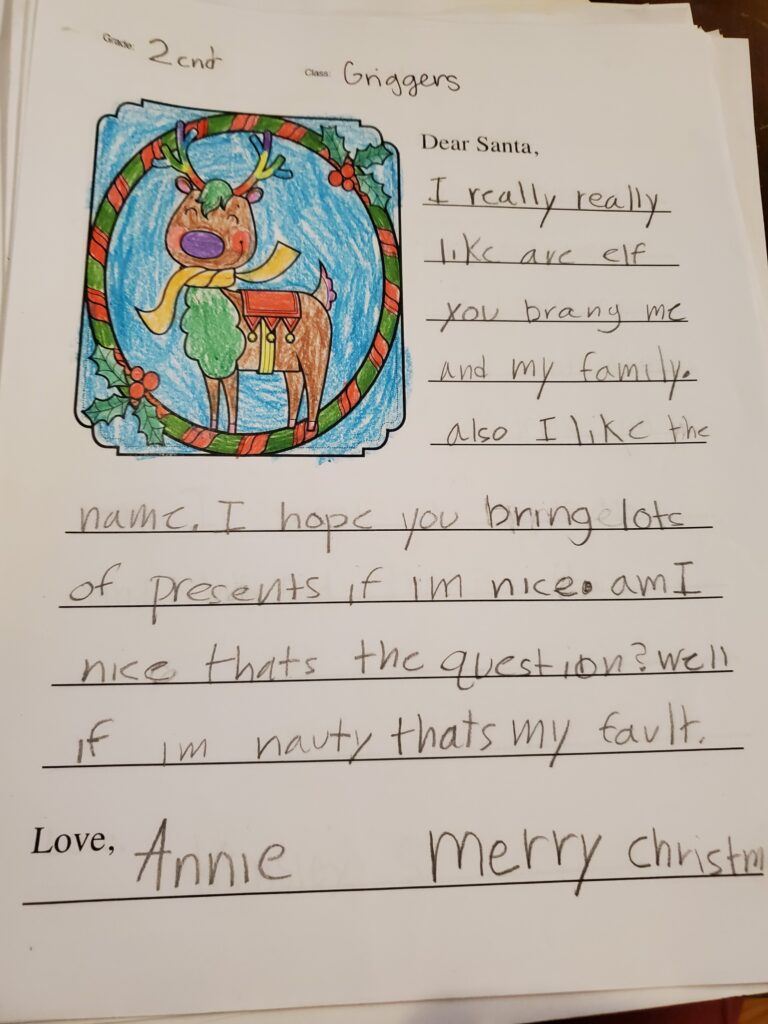 Grade: 2cnd
Class: Griggers
Dear Santa,
I really really
like are elf
you brang me
and my family.
also I like the
name. I hope you bring lots
of presents if im nice. am I
nice thats the question? well
if im nauty thats my fault.
Love, Annie merry christm